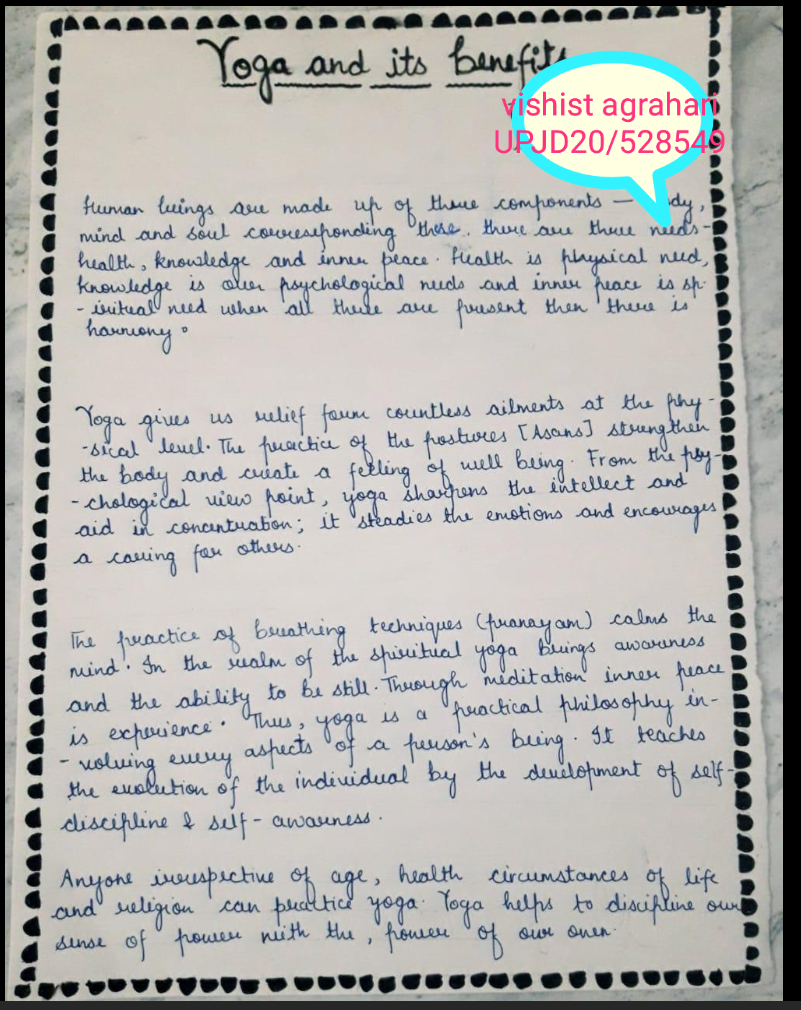 Yoga and its benefits
vishist agrahari
UPJD20/528549
Human beings are made up of three components — dy,
mind and soul corresponding these. there are three needs-
health, knowledge and inner peace. Health is physical need,
knowledge is our psychological needs and inner peace is sp-
-iritual need when all these are present then there is
harmony.
Yoga gives us relief form countless ailments at the phy-
-sical level. The practice of the postures [Asans] strengthen
the body and create a feeling of well being. From the psy-
-chological view point, yoga sharpens the intellect and
aid in concentration; it steadies the emotions and encourages
a caring for others.
The practice of breathing techniques (pranayam) calms the
mind. In the realm of the spiritual yoga brings awareness
and the ability to be still. Through meditation inner peace
is experience. Thus, yoga is a practical philosophy in-
-volving every aspects of a person's being. It teaches
the evolution of the individual by the development of self-
discipline & self-awarness.
Anyone irrespective of age, health circumstances of life
and religion can practice yoga. Yoga helps to discipline our
sense of power with the, power of our own.